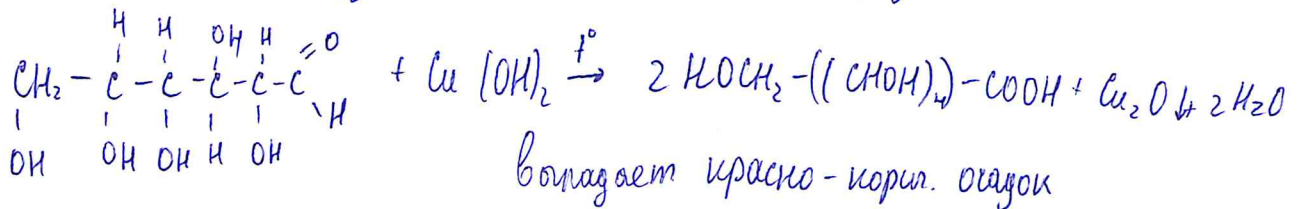 H H OH H O
CH₂ – C – C – C – C – C + Cu (OH)₂ t° → 2 HOCH₂ – ((CHOH)₄) – COOH + Cu₂O↓ + 2H₂O
H
OH OH OH H OH
выпадает красно-корич. осадок